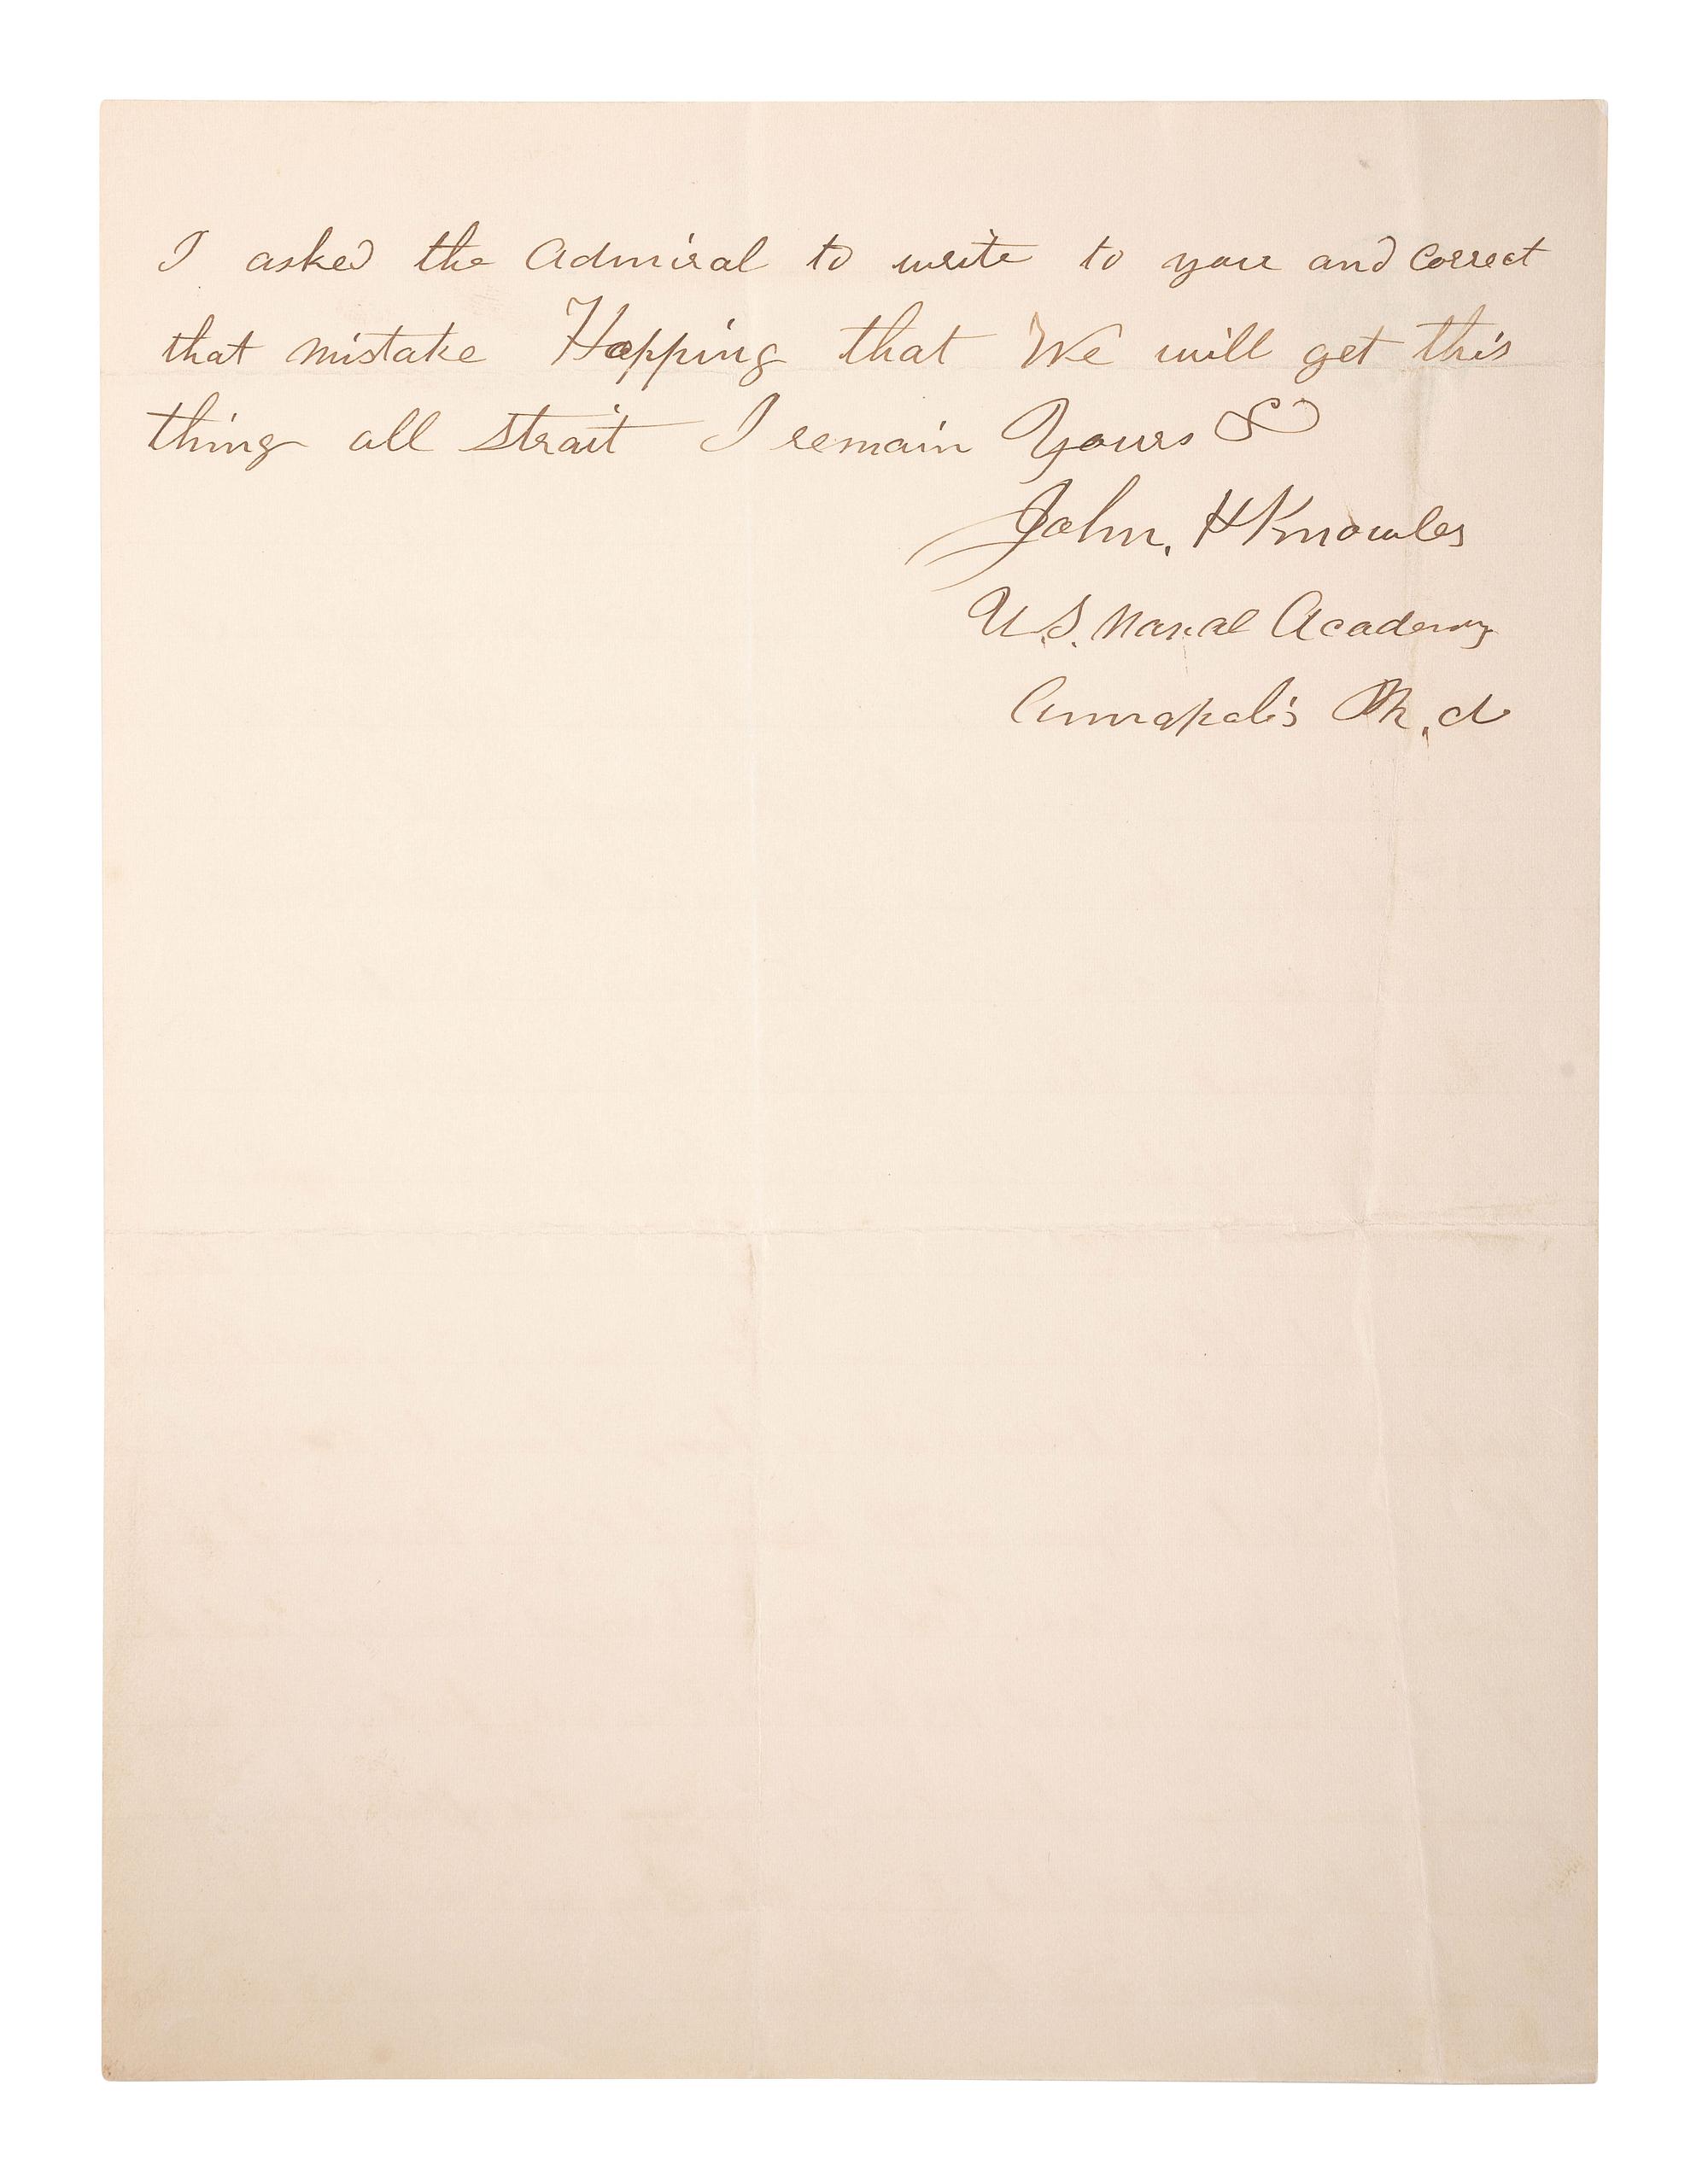 I asked the Admiral to write to you and Correct
that mistake Hopping that We will get this
thing all Strait I remain Yours &
John. H Knowles
U.S. Naval Academy
Annapolis M.d